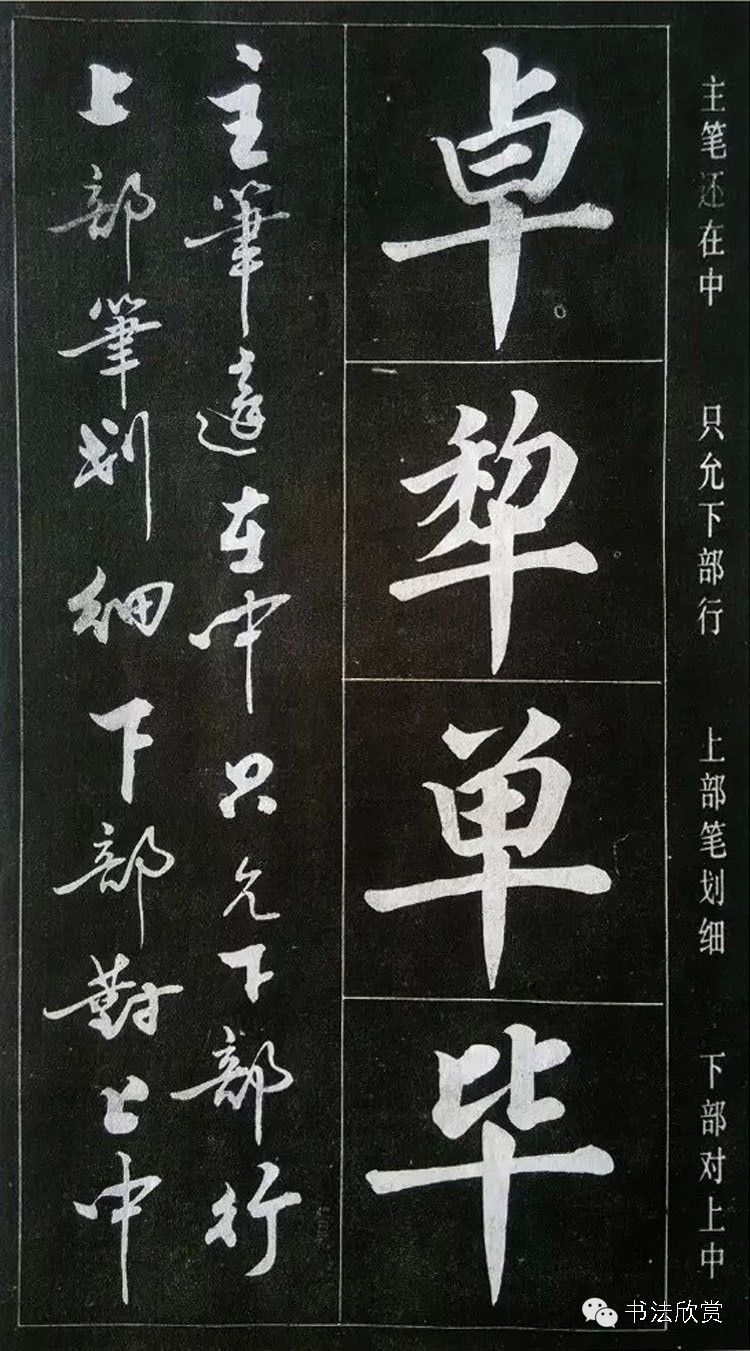 主笔还在中 只允下部行 上部笔划细 下部对上中
卓
犂
单
毕
主筆還在中只允下部行
上部筆划細下部對上中
书法欣赏